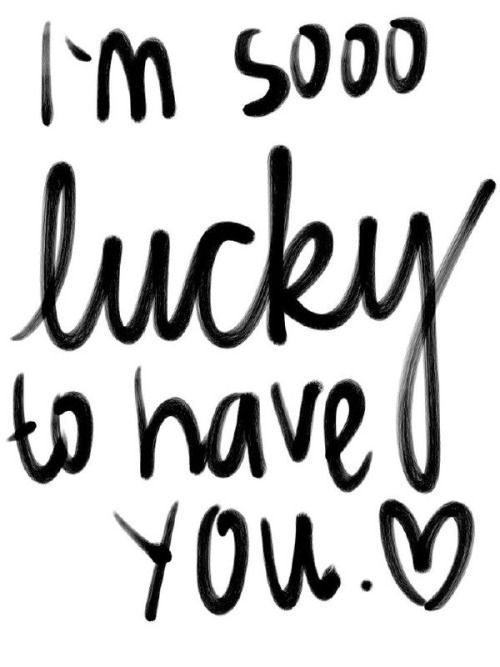 I'm sooo
lucky
to have
you. ♡